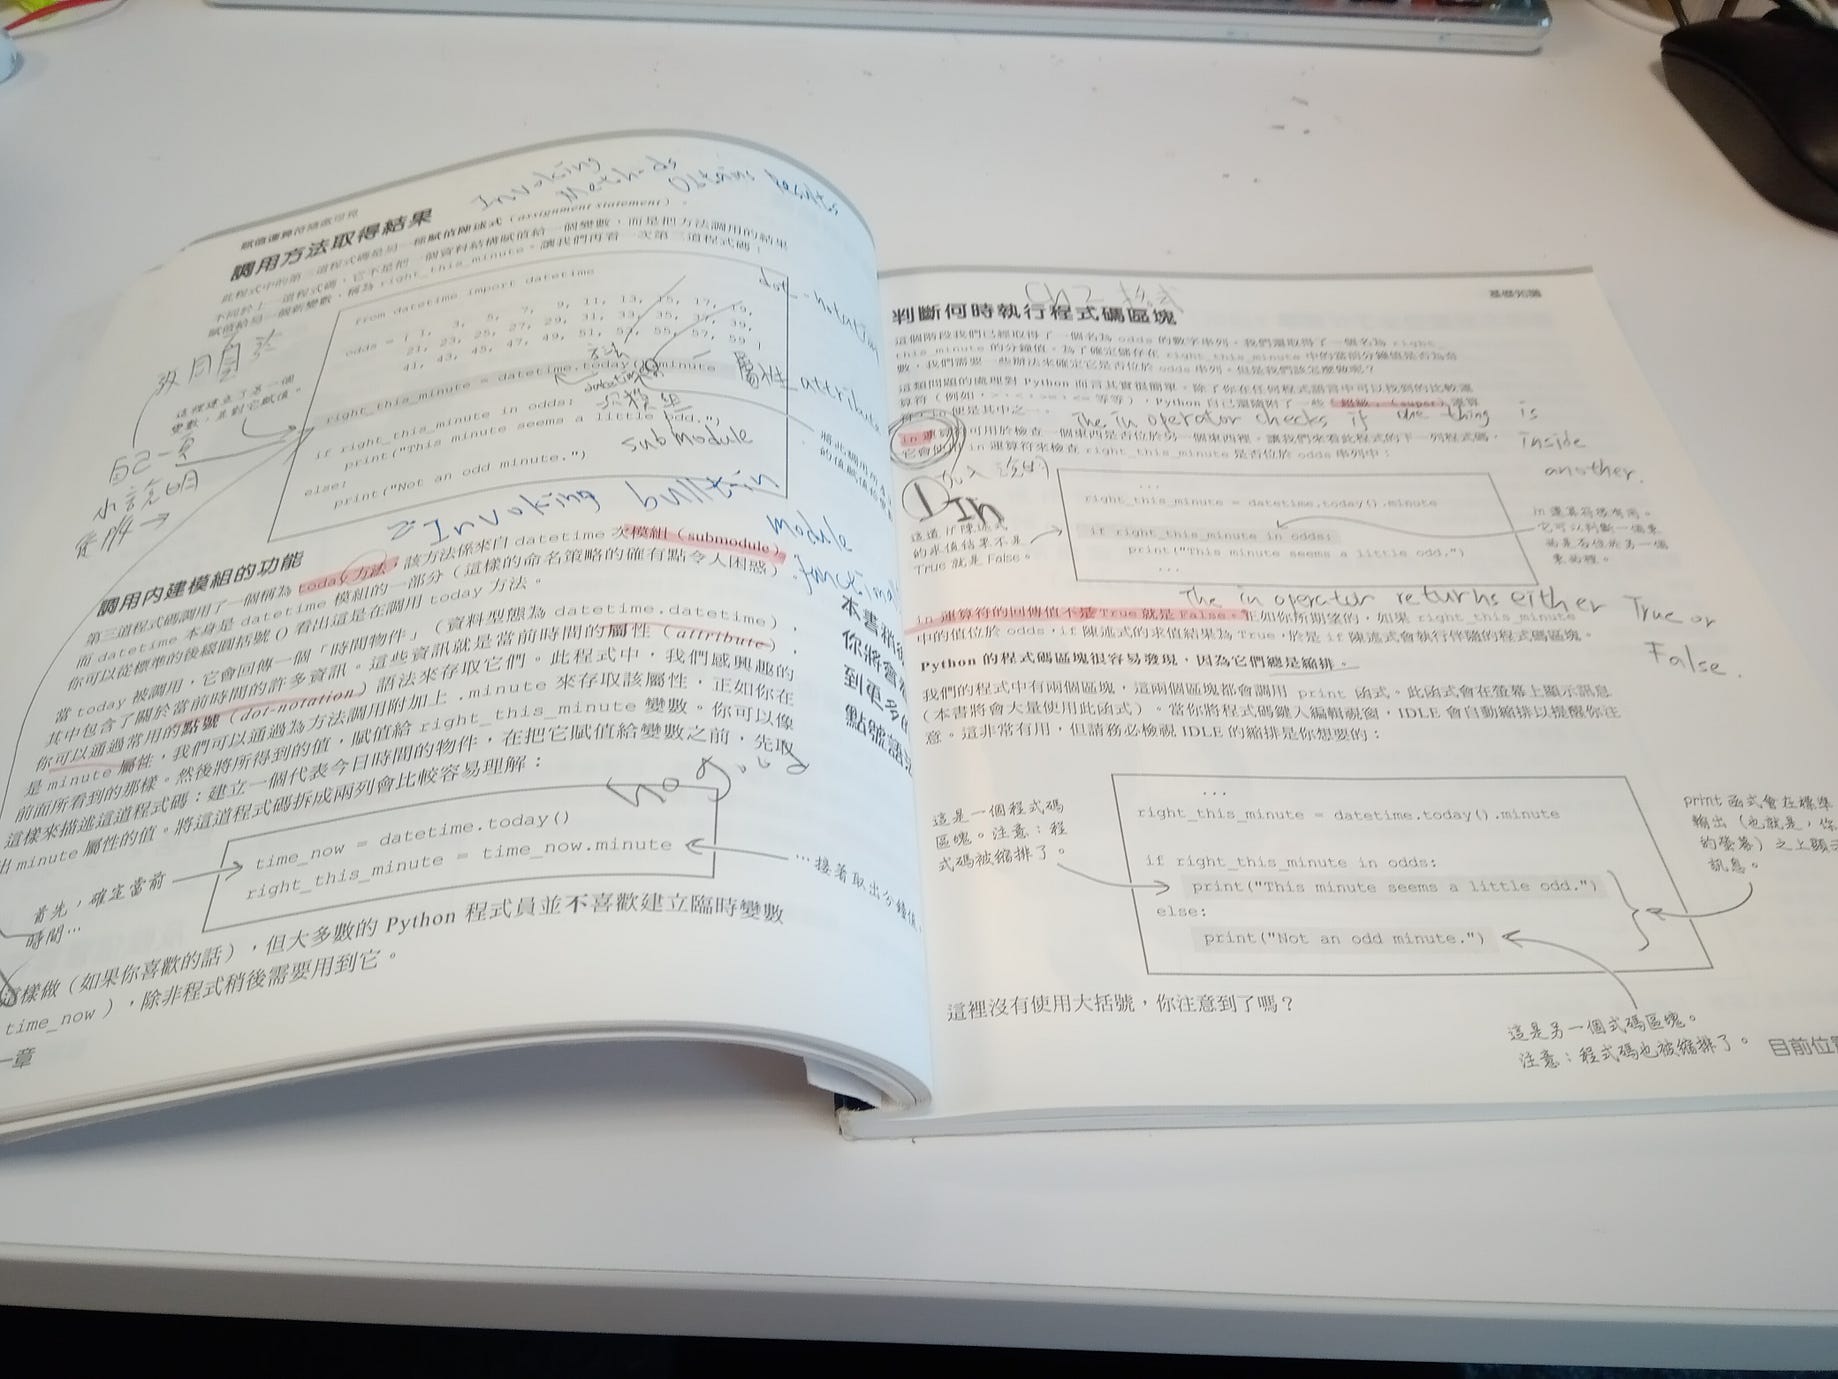 賦值運算符隨處可見
調用方法取得結果
Invoking
Methods
Obtains Results
此程式中的第三道程式碼是另一種賦值陳述式（assignment statement）。
不同於上一道程式碼，它不是把一個資料結構賦值給一個變數，而是把方法調用的結果
賦值給另一個新變數，稱為 right_this_minute。讓我們再看一次第三道程式碼：
from datetime import datetime
odds = [ 1, 3, 5, 7, 9, 11, 13, 15, 17, 19,
21, 23, 25, 27, 29, 31, 33, 35, 37, 39,
41, 43, 45, 47, 49, 51, 53, 55, 57, 59 ]
right_this_minute = datetime.today().minute
if right_this_minute in odds:
print("This minute seems a little odd.")
else:
print("Not an odd minute.")
這裡建立了另一個
變數，並對它賦值。
自己一頁
小說明
方法
次模組
submodule
dot-notation
屬性 attribute
將此調用所得
調用內建模組的功能
2 Invoking builtin
module
functional
第三道程式碼調用了一個稱為 today 方法，該方法係來自 datetime 次模組（submodule），
而 datetime 本身是 datetime 模組的一部分（這樣的命名策略的確有點令人困惑）。
你可以從標準的後綴圓括號 () 看出這是在調用 today 方法。
當 today 被調用，它會回傳一個「時間物件」（資料型態為 datetime.datetime），
其中包含了關於當前時間的許多資訊。這些資訊就是當前時間的屬性（attribute），
你可以通過常用的點號（dot-notation）語法來存取它們。此程式中，我們感興趣的
是 minute 屬性，我們可以通過為方法調用附加上 .minute 來存取該屬性，正如你在
前面所看到的那樣。然後將所得到的值，賦值給 right_this_minute 變數。你可以像
這樣來描述這道程式碼：建立一個代表今日時間的物件，在把它賦值給變數之前，先取
出 minute 屬性的值。將這道程式碼拆成兩列會比較容易理解：
本書稍後
你將會
到更多
點號語法
no good
首先，確定當前
時間…
time_now = datetime.today()
right_this_minute = time_now.minute
…接著取出分鐘值。
這樣做（如果你喜歡的話），但大多數的 Python 程式員並不喜歡建立臨時變數
time_now ），除非程式稍後需要用到它。
一章
基礎知識
Ch2
判斷何時執行程式碼區塊
這個階段我們已經取得了一個名為 odds 的數字串列，我們還取得了一個名為 right_
this_minute 的分鐘值。為了確定儲存在 right_this_minute 中的當前分鐘值是否為奇
數，我們需要一些辦法來確定它是否位於 odds 串列。但是我們該怎麼做呢？
這類問題的處理對 Python 而言其實很簡單。除了你在任何程式語言中可以找到的比較運
算符（例如，>、<、>=、<= 等等），Python 自己還隨附了一些「超級」（super）運算
符，in 便是其中之一。
The in operator checks if one thing is
inside
another.
in 運算符可用於檢查一個東西是否位於另一個東西裡。讓我們來看此程式的下一列程式碼，
它會使用 in 運算符來檢查 right_this_minute 是否位於 odds 串列中：
加入說明
① In
...
right_this_minute = datetime.today().minute
if right_this_minute in odds:
print("This minute seems a little odd.")
...
這道 if 陳述式
的求值結果不是
True 就是 False。
in 運算符很有用。
它可以判斷一個東
西是否位於另一個
東西裡。
The in operator returns either True or
False.
in 運算符的回傳值不是 True 就是 False。正如你所期望的，如果 right_this_minute
中的值位於 odds，if 陳述式的求值結果為 True，於是 if 陳述式會執行伴隨的程式碼區塊。
Python 的程式碼區塊很容易發現，因為它們總是縮排。
我們的程式中有兩個區塊，這兩個區塊都會調用 print 函式。此函式會在螢幕上顯示訊息
（本書將會大量使用此函式）。當你將程式碼鍵入編輯視窗，IDLE 會自動縮排以提醒你注
意。這非常有用，但請務必檢視 IDLE 的縮排是你想要的：
這是一個程式碼
區塊。注意：程
式碼被縮排了。
...
right_this_minute = datetime.today().minute
if right_this_minute in odds:
print("This minute seems a little odd.")
else:
print("Not an odd minute.")
print 函式會在標準
輸出（也就是，你
的螢幕）之上顯示
訊息。
這裡沒有使用大括號，你注意到了嗎？
這是另一個式碼區塊。
注意：程式碼也被縮排了。
目前位置